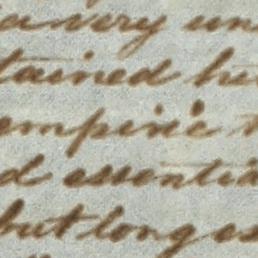 a very un
tained hi
empiric
d essentia
but long es